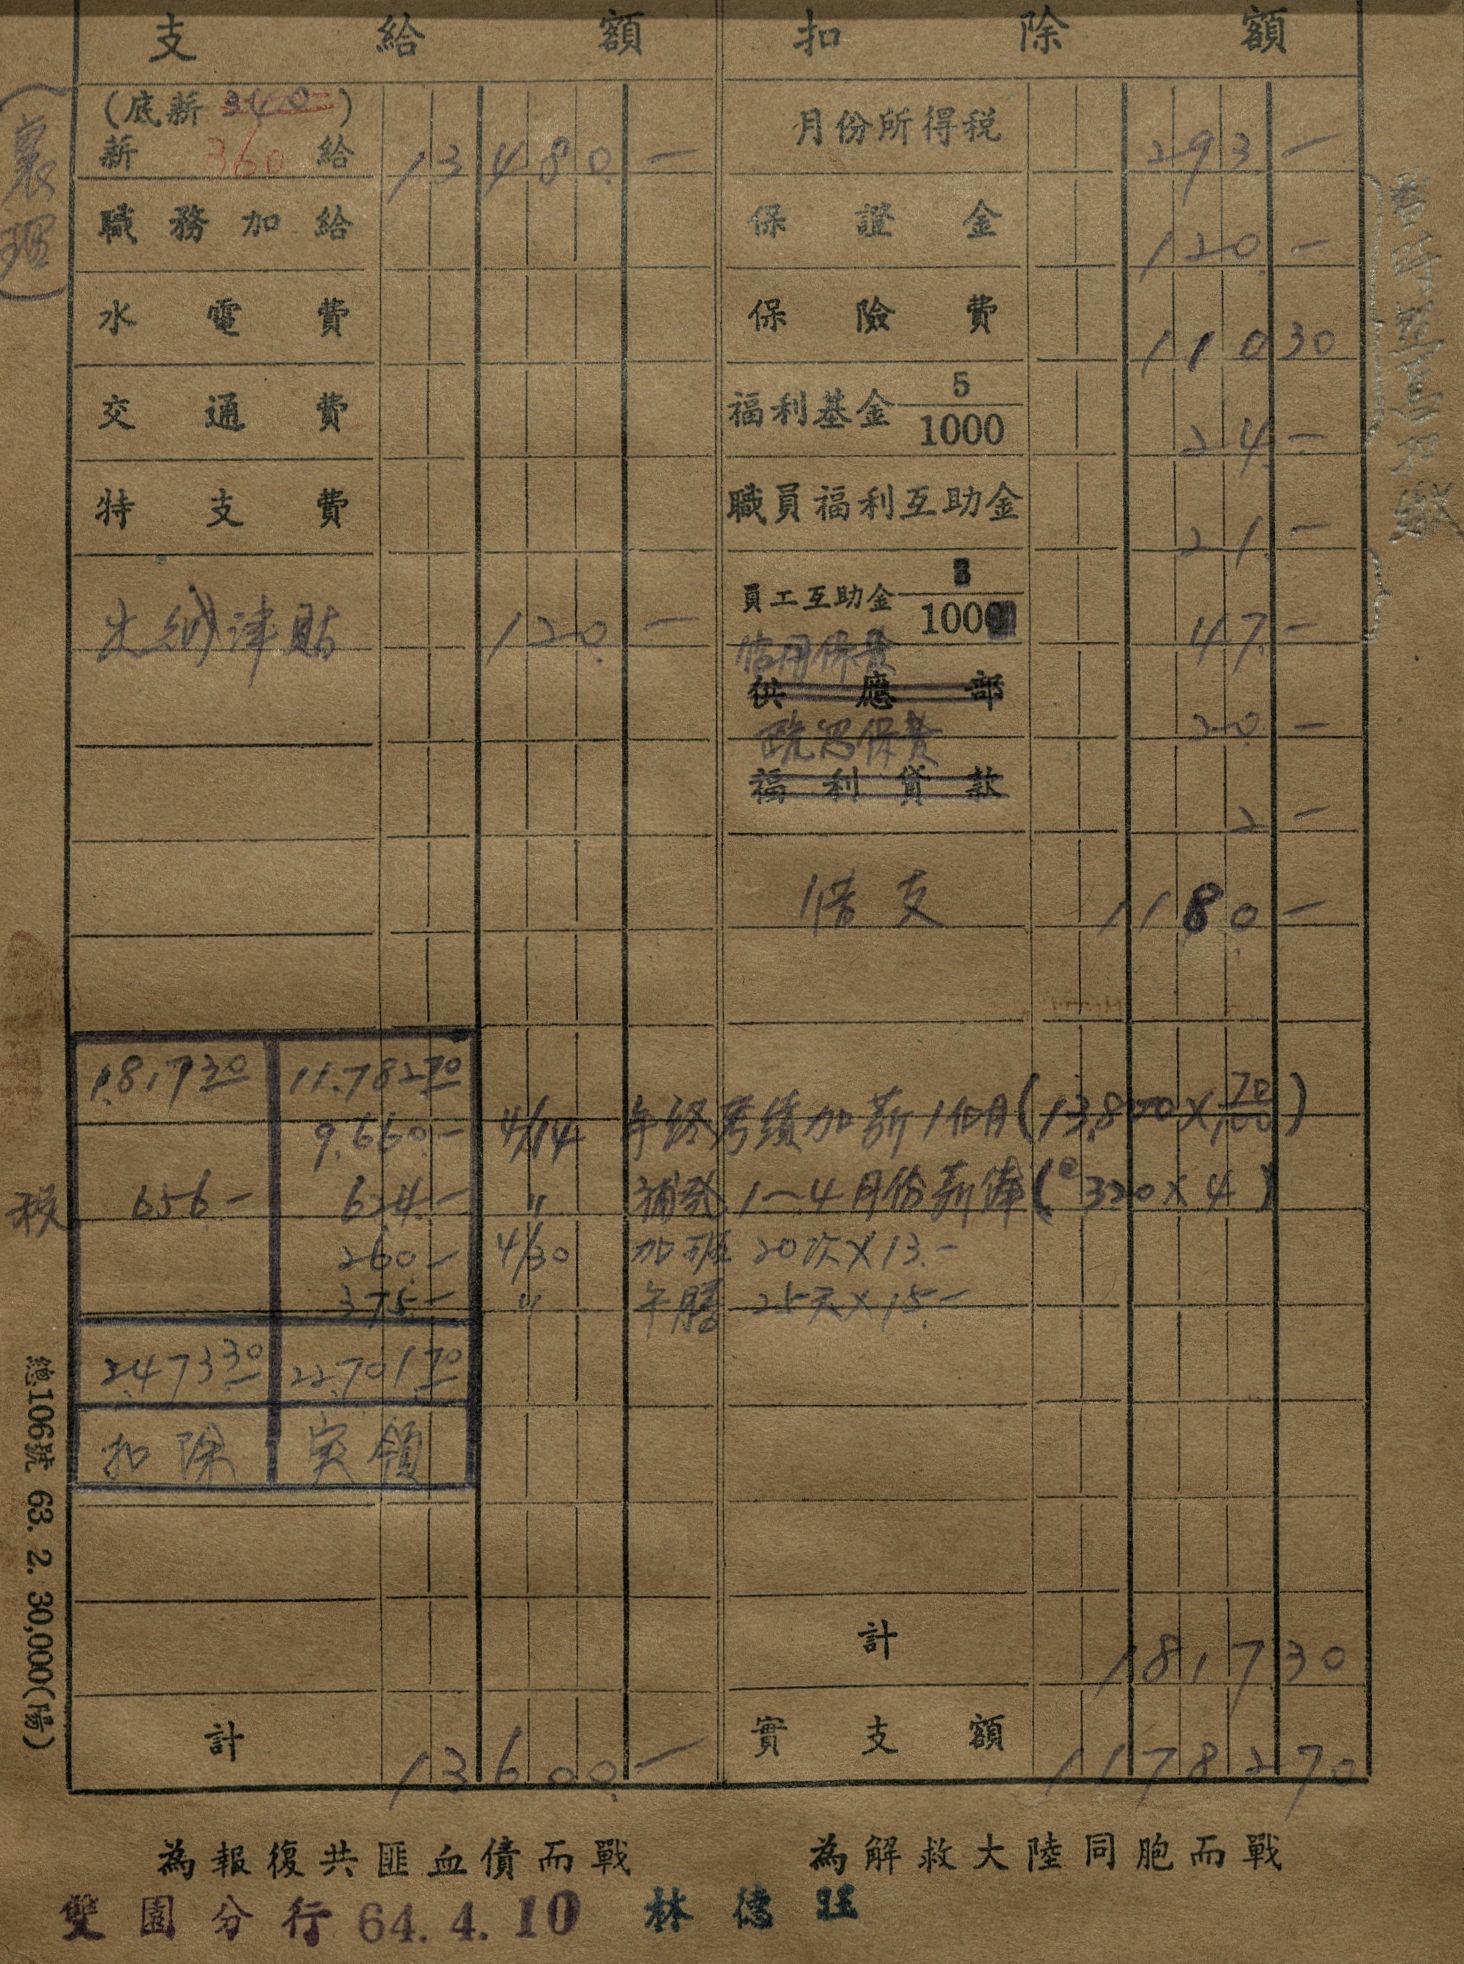 支給額 扣除額
(底薪 340)
薪 360 給 13480.— 月份所得稅 293.—
(襄理)
職務加給 保證金 120.—
水電費 保險費 110 30
交通費 福利基金 5/1000 24.—
特支費 職員福利互助金 21.—
出納津貼 120.— 員工互助金 /1000 47.—
信用保費
供應部 20.—
疏忽保費
福利貸款 2.—
借支 1180.—
1,817 30 11,782 70
9,660.— 4/14 年終考績加薪1個月(13,800×70/100)
稅 656.— 624.— 〃 補發1~4月份薪俸(@320×4)
260.— 4/30 加班 20次×13.—
375.— 〃 午膳 25天×15.—
2,473 30 22,701 70
扣除 実領
計 1817 30
計 13600.— 實支額 11782 70
總106號 63. 2. 30,000(陽)
為報復共匪血債而戰 為解救大陸同胞而戰
雙園分行 64. 4. 10 林德旺